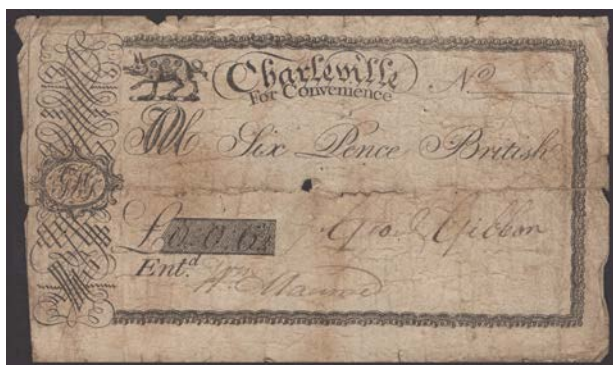 Charleville
For Convenience
No
Six Pence British
£0.0.6
Geo Gibbon
Ent.d